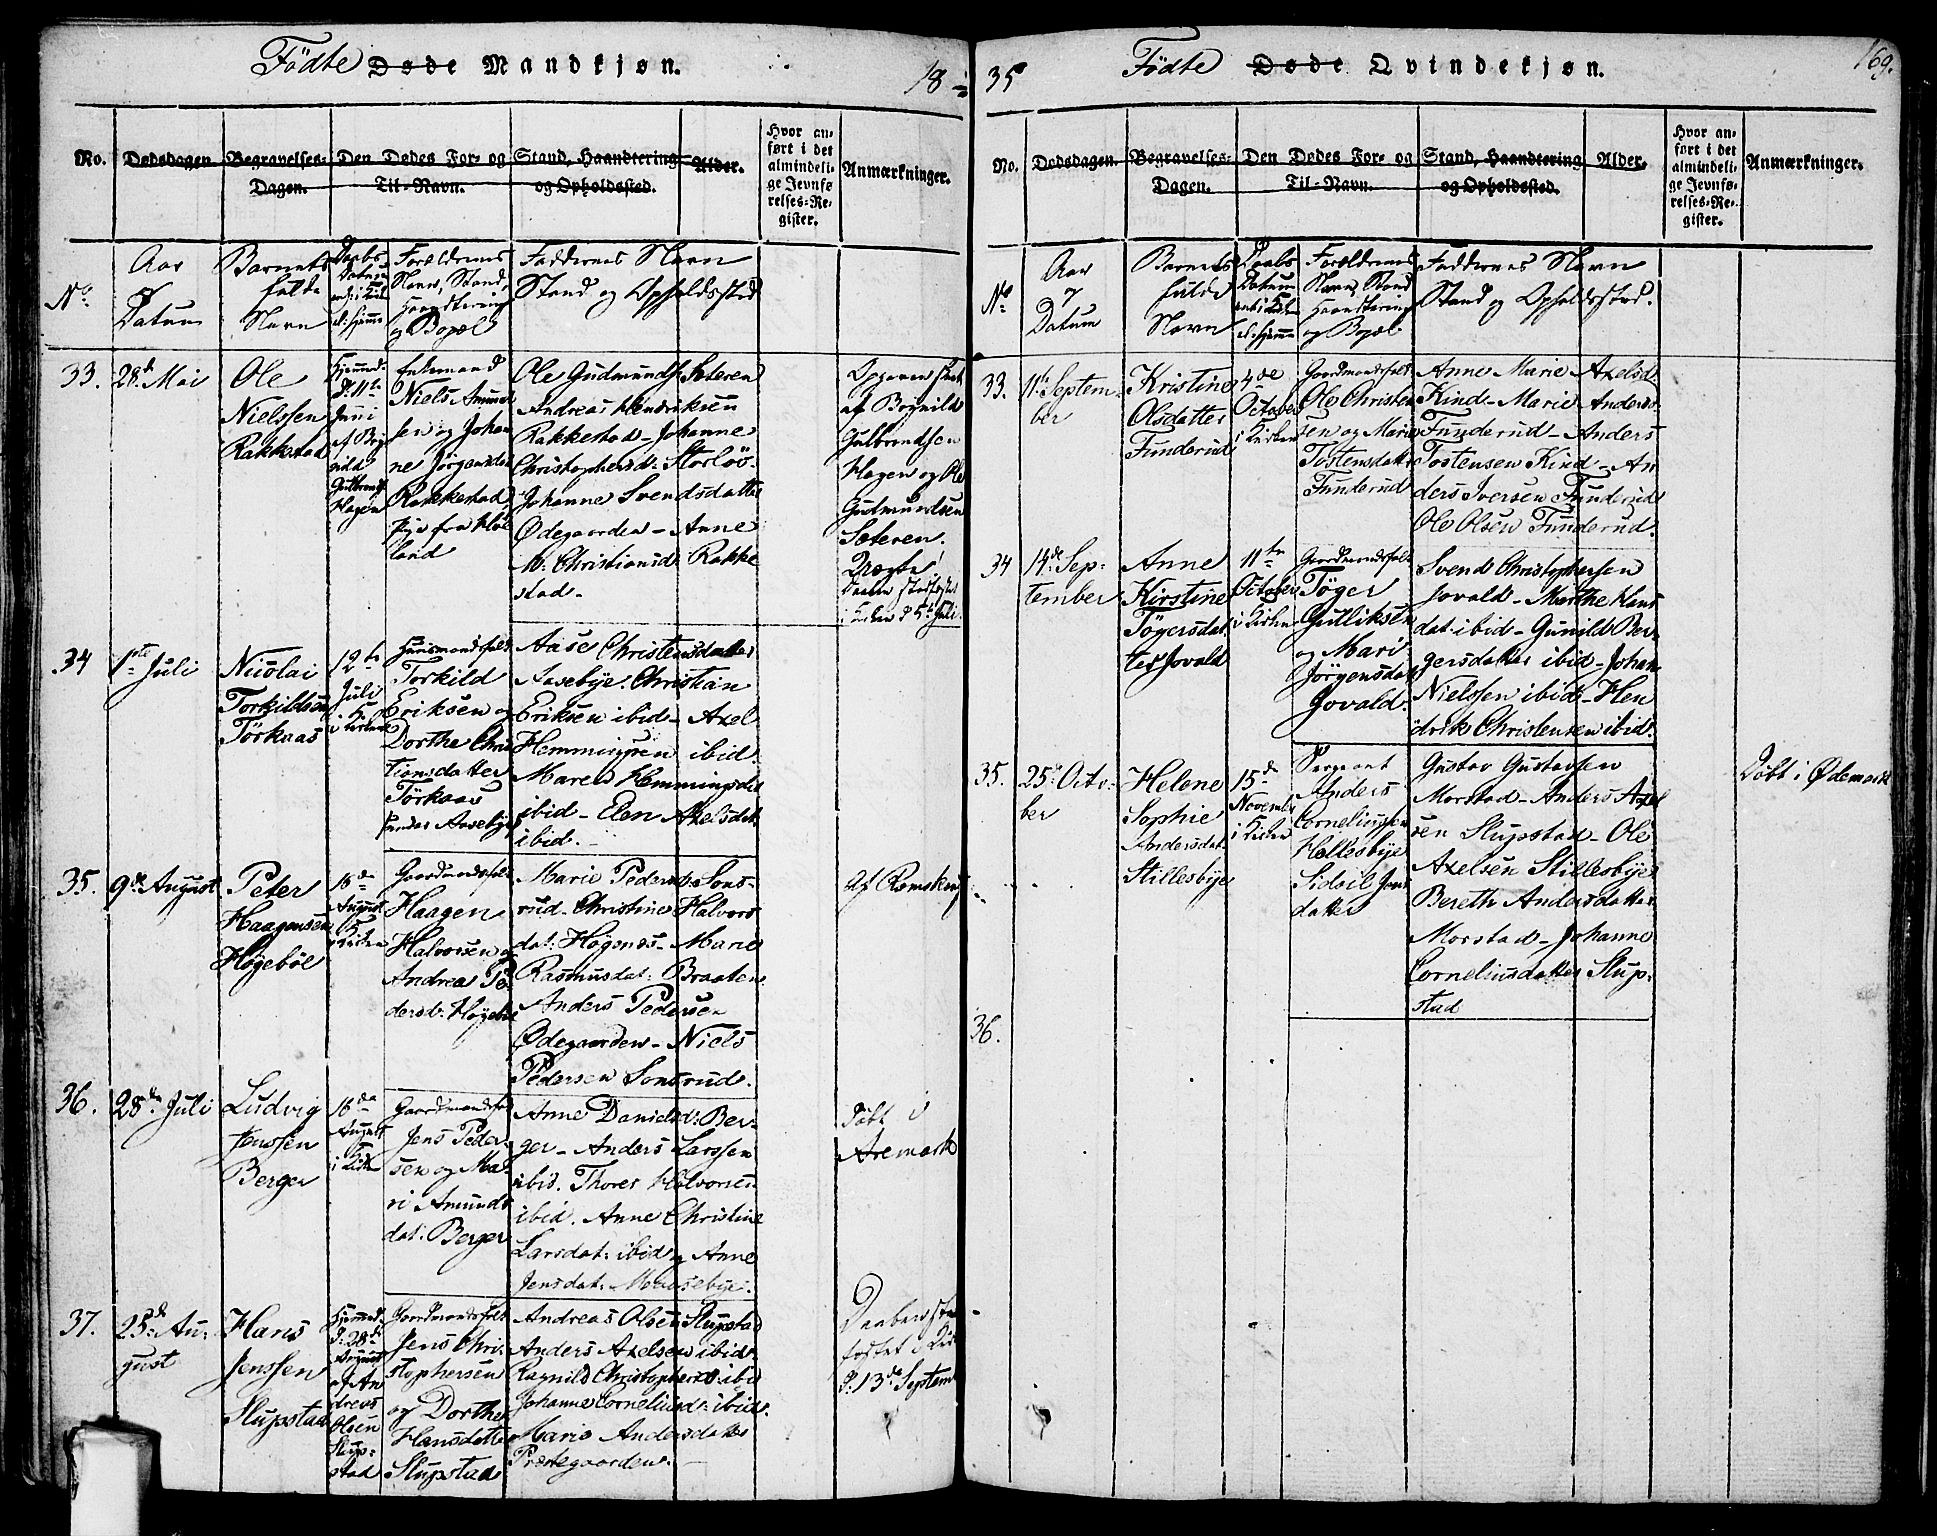 Födte Døde Mandkjøn.
18
No.
Dødsdagen.
Begravelses-
Dagen.
Den Dødes For- og
Til-Navn.
Stand, Haandtering
og Opholdssted.
Alder.
Hvor an-
ført i det
almindeli-
ge Jevnfø-
relses-Re-
gister.
Anmærkninger.
No
Aar
&
Datum
Barnets
fulde
Navn
Daabs
Datum
Forældrenes
Navn, Stand,
Haandtering
og Bopæl
Faddernes Navn
Stand og Opholdssted
33.
28d Mai
Ole
Nielssen
Rakkestad
Hjemmed.
d: 11te
Juni
af Bog
nild
Gulbrands
Hagen
Enkemand
Niels Amund
sen og Johan
ne Jörgensdat
Rakkestad
Pige fra Høe
land
Ole Gudmunds: Sæteren
Andreas Hendriksen
Rakkestad - Johanne
Christophersd: Storlös.
Johanne Svendsdatter
Ødegaarden - Anne
M: Christiansd: Rakke
stad -
Opgaven skeet
af Bognild
Gulbrandsen
Hagen og Ole
Gudmundsen
Sæteren.
Daaben stadfæstet
i Kirken d 5te Juli.
34
1ste Juli
Nicolai
Torkildsen
Törkaas
12te
Juli
i Kirken
Huusmandsfolk
Torkild
Eriksen og
Dorthe Chris
tiansdatter
Törkaas
under Aasebye
Aase Christensdatter
Aasebye. Christian
Eriksen ibid - Axel
Hemmingsen ibid
Maren Hemmingsdat
ibid - Elen Axelsdat
ibid. -
35.
9de August
Peter
Haagensen
Högeböe
16de
August
i Kirken
Gaardmandsfolk
Haagen
Halvorsen og
Andrea Pe
dersd: Högeböe
Marie Pedersd: Sons-
rud - Christine Halvors
dat: Högenæs - Marie
Rasmusdat: Braaten
Anders Pedersen
Ødegaarden - Niels
Pedersen Sonsrud.
Af Rømskog
36.
28de Juli
Ludvig
Jenssen
Berger
16de
August
i Kirken
Gaardmandsfolk
Jens Peder-
sen og Ma-
ri Amunds
dat: Berger
Anne Danielsd: Ber-
ger - Anders Larssen
ibid. Thores Halvorsen
ibid. Anne Christine
Larsdat: ibid og Anne
Jensdat: Moensebye.
Döbt i
Aremark
37.
25de Au-
gust
Hans
Jenssen
Slupstad
Hjemmed.
d: 28de
August
af An
dreas
Olsen
Slup-
stad
Gaardmandsfolk
Jens Chri-
stophersen
og Dorthe
Hansdatter
Slupstad
Andreas Olsen Slupstad
Anders Axelsen ibid
Ragnild Christophersd: ibid
Johanne Corneliusd: ibid.
Marie Andersdatter
Præstegaarden. -
Daaben stad
fæstet i Kir
d: 13de Septem
35
Födte Døde Qvindekjøn.
169.
No.
Dødsdagen.
Begravelses-
Dagen.
Den Dødes For- og
Til-Navn.
Stand, Haandtering
og Opholdssted.
Alder.
Hvor an-
ført i det
almindeli-
ge Jevnfø-
relses-Re-
gister.
Anmærkninger.
No
Aar
&
Datum
Barnets
fulde
Navn
Daabs
Datum
Forældrenes
Navn, Stand
Haandtering
og Bopæl
Faddernes Navn
Stand og Opholdssted.
33.
11te Septem-
ber
Kristine
Olsdatter
Funderud
4de
October
i Kirken
Gaardmandsfolk
Ole Christen
sen og Marie
Tostensdatter
Funderud
Anne Marie Axelsd:
Kind - Marie Andersd:
Funderud - Anders
Tostensen Kind - An
ders Iversen Funderud
Ole Olsen Funderud.
34
14de Sep-
tember
Anne
Kirstine
Tögersdat
ter Jovald
11te
October
i Kirken
Gaardmandsfolk
Töger
Gulliksen
og Mari
Jörgensdat
Jovald
Svend Christophersen
Jovald - Marthe Hans
dat: ibid - Gunild Ber-
gersdatter ibid - Johan
Nielssen ibid - Hen
drik Christensen ibid.
35.
25de Octo-
ber
Helene
Sophie
Andersdat
Stillesbye
15de
Novemb:
i Kirken
Sergeant
Anders
Corneliussen
Hallesbye
Sidsil Jens
datter
Gustav Gustavsen
Morstad - Anders Axel
sen Slupstad - Ole
Axelsen Stillesbye
Bereth Andersdatter
Morstad - Johanne
Corneliusdatter Slup-
stad
Döbt i Ødemark
36.